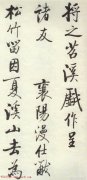 将之苕溪戲作呈
諸友　襄陽漫仕黻
松竹留因夏溪山去為